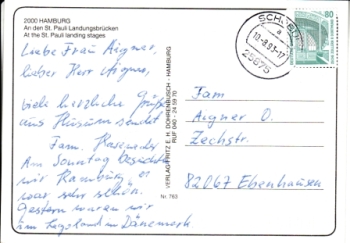 2000 HAMBURG
An den St. Pauli Landungsbrücken
At the St. Pauli landing stages
Liebe Frau Aigner,
lieber Herr Aigner,
viele herzliche Grüße
aus Husum sendet
Fam.
Am Sonntag besichtigten
wir Hamburg, es
war sehr schön.
Gestern waren wir
im Legoland in Dänemark
VERLAG FRITZ E. H. DOHRENBUSCH - HAMBURG
RUF 040 - 24 59 70
Nr. 763
10.-8.93-17
25875
80
Fam
Aigner O.
Zechstr.
82067 Ebenhausen